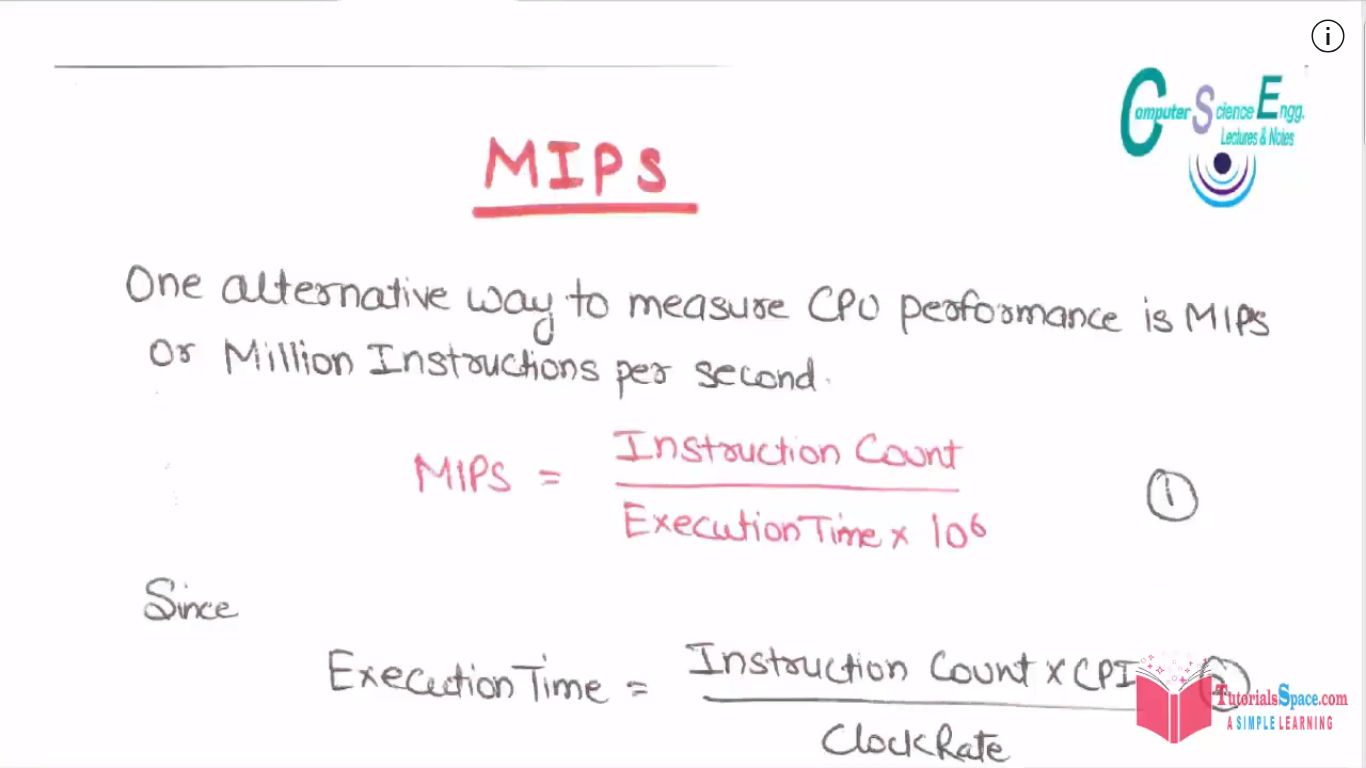 Computer Science Engg.
Lectures & Notes
MIPS
One alternative way to measure CPU performance is MIPS
Or Million Instructions per second.
MIPS = Instruction Count
Execution Time x 10⁶
1
Since
Execution Time = Instruction Count x CPI
Clock Rate
TutorialsSpace.com
A SIMPLE LEARNING